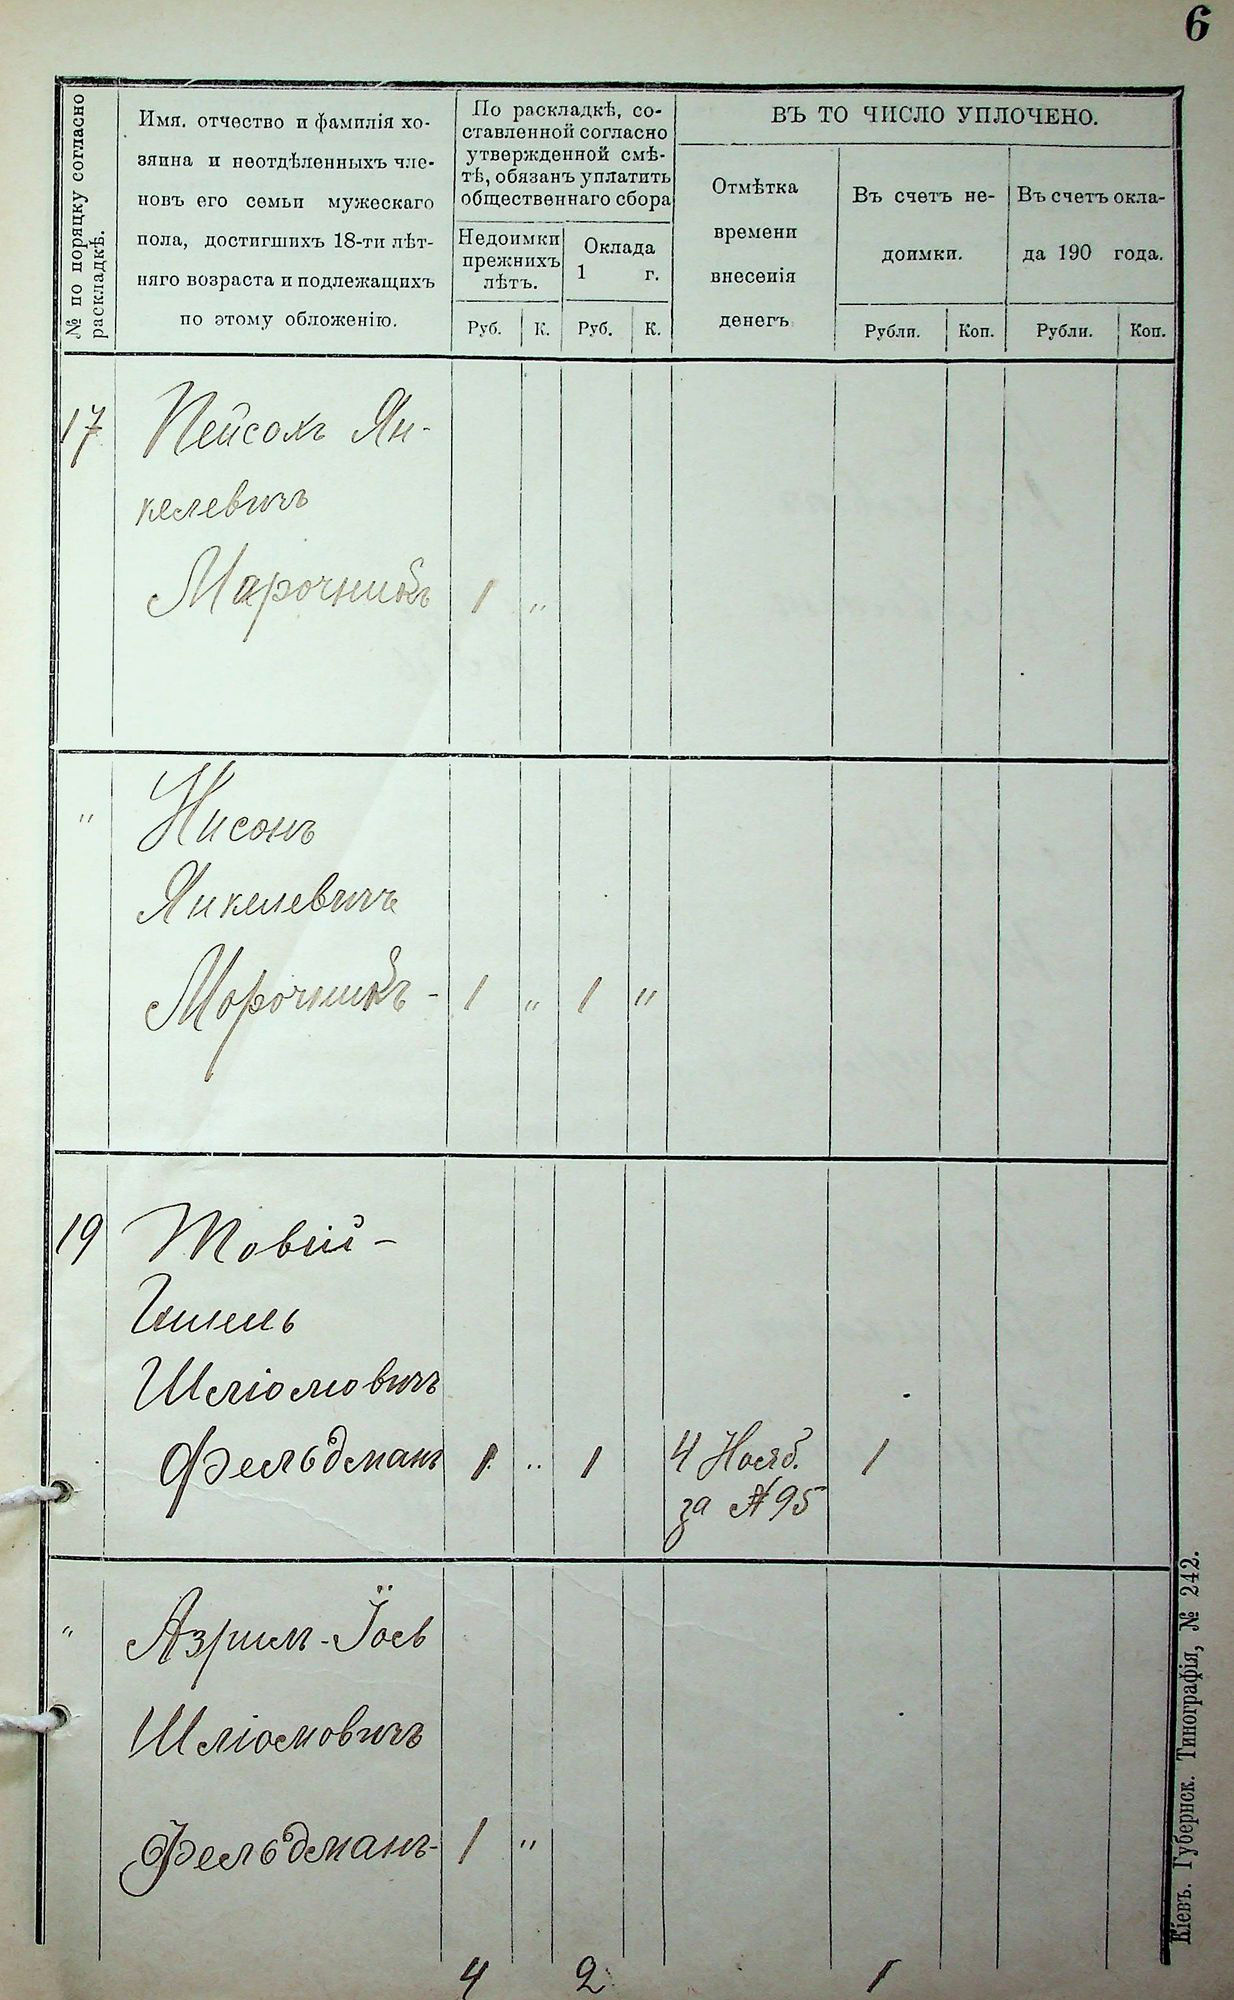 6
№ по порядку согласно
раскладкѣ.
Имя, отчество и фамилія хо-
зяина и неотдѣленныхъ чле-
новъ его семьи мужескаго
пола, достигшихъ 18-ти лѣт-
няго возраста и подлежащихъ
по этому обложенію.
По раскладкѣ, со-
ставленной согласно
утвержденной смѣ-
тѣ, обязанъ уплатить
общественнаго сбора
Недоимки
прежнихъ
лѣтъ.
Оклада
1 г.
Руб. К. Руб. К.
ВЪ ТО ЧИСЛО УПЛОЧЕНО.
Отмѣтка
времени
внесенія
денегъ
Въ счетъ не-
доимки.
Въ счетъ окла-
да 190 года.
Рубли. Коп. Рубли. Коп.
17 Пейсахъ Ян-
келевичъ
Марочникъ 1 "
" Нисонъ
Янкелевичъ
Морочникъ - 1 " 1 "
19 Товій-
Гишель
Шліомовичъ
Фельдманъ 1 " 1 4 Нояб. 1
за №95
" Азрил-Іось
Шліомовичъ
Фельдманъ- 1 "
4 2 1
Кіевъ. Губернск. Типографія, № 242.